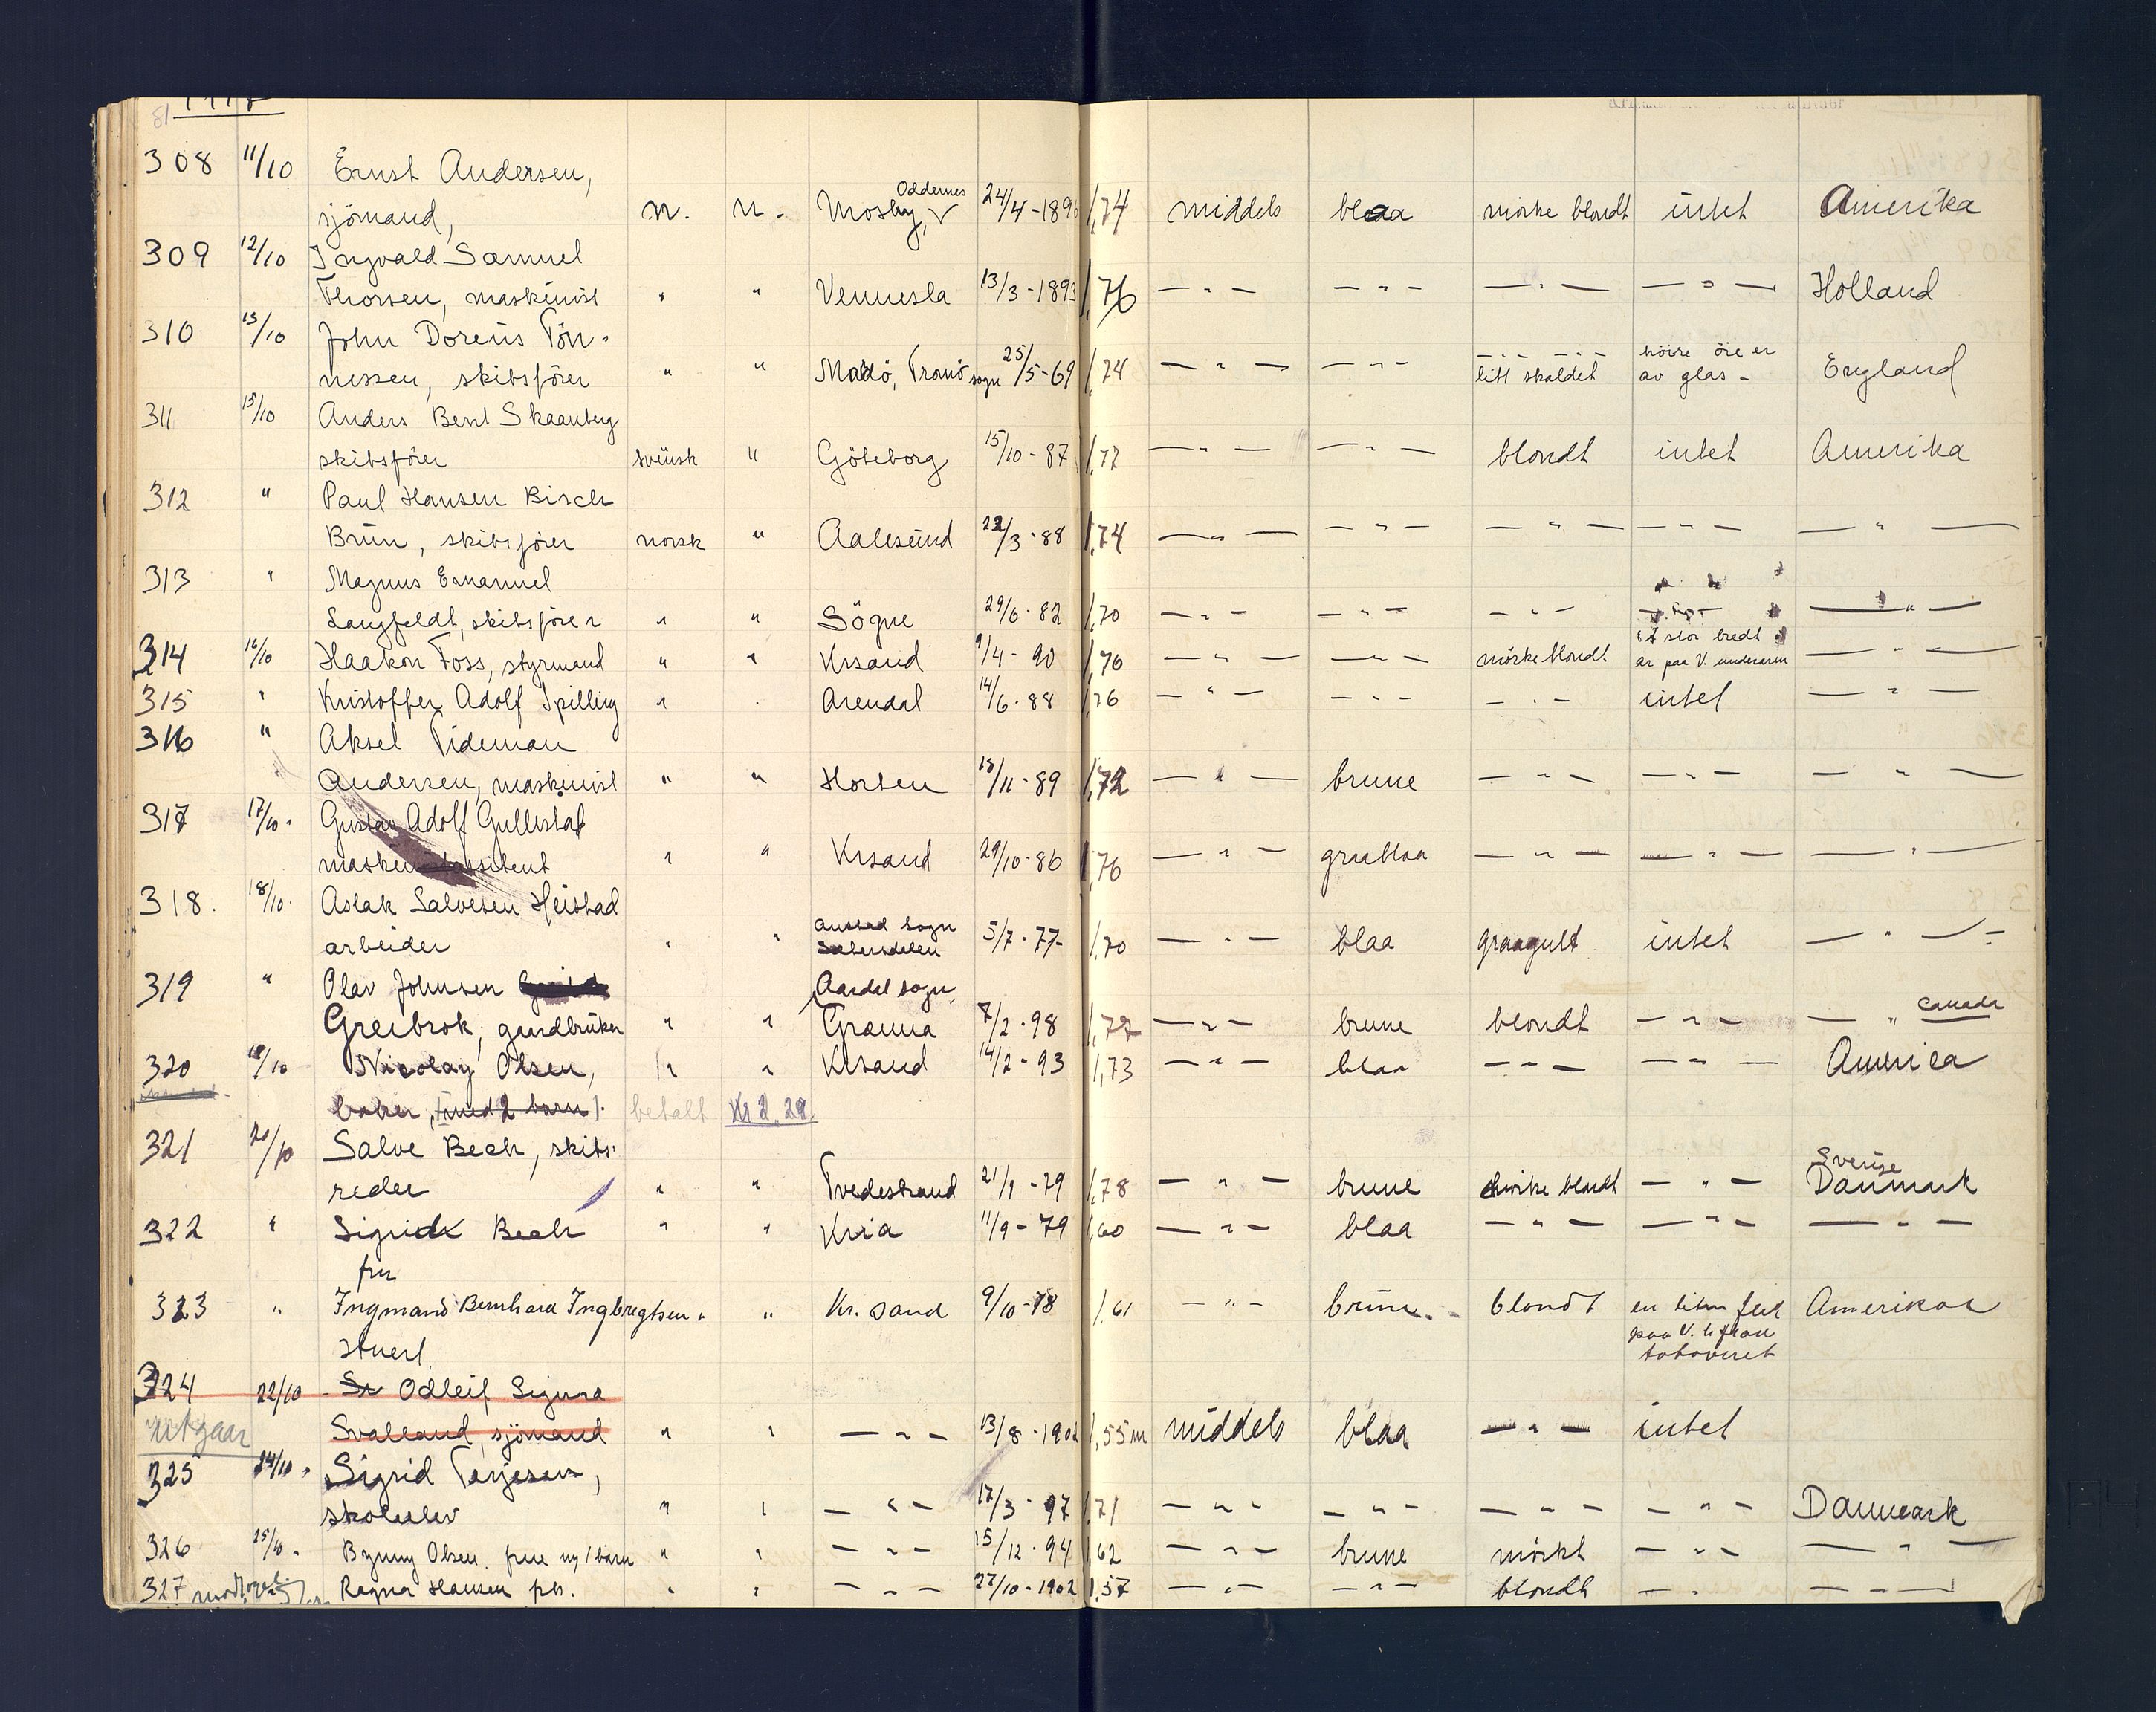 308 11/10 Ernst Andersen, Oddernes
sjömand, n. n. Mosby, 24/4-189 1,74 middels blaa mörke blondt intet Amerika
309 12/10 Ingvald Samuel
Thorsen, maskinist " " Vennesla 13/3-1893 1,76 — " — — " — — " — — " — Holland
310 13/10 John Doreus Tön-
nessen, skibsförer " " Tromö sogn 25/5-69 1,74 — " — — " — litt skaldet höire öie er av glas - England
311 15/10 Anders Bernt Skaanberg
skibsförer svensk " Göteborg 15/10-87 1,77 — " — — " — blondt intet Amerika
312 " Paul Hansen Birch
Brun, skibsförer norsk " Aalesund 22/3-88 1,74 — " — — " — — " — — " — — " —
313 " Magnus Emanuel
Langfeldt, skibsförer " " Sögne 29/6-82 1,70 — " — — " — — " — — " — — " —
314 16/10 Haakon Foss, styrmand " " Krsand 9/4-90 1,76 — " — — " — mörke blondt et stor bredt ar paa V. underarm — " —
315 " Kristoffer Adolf Spilling " " Arendal 14/6-88 1,76 — " — — " — — " — intet — " —
316 " Aksel Tideman
Andersen, maskinist " " Horten 18/11-89 1,72 — " — brune — " — — " — — " —
317 17/10. Gustav Adolf Gullestad
" " Krsand 29/10-86 1,76 — " — graablaa — " — — " — — " —
318. 18/10. Aslak Salvesen Heistad
arbeider " " Austad sogn Sætersdalen 5/7-77- 1,70 — " — blaa graagult intet — " —
319 " Olav Johnsen Aardal sogn,
Greibrok, gaardbruker " " 7/2-98 1,77 — " — brune blondt — " — — " Canada
320 18/10 Nicolay Olsen, " " Krsand 14/2-93 1,73 — " — blaa — " — — " — America
baker, (med 2 barn). betalt Kr 2.29.
321 20/10 Salve Bech, skibs-
reder " " Tvedestrand 21/9-79 1,78 — " — brune mörke blondt — " — Sverige Danmark
322 " Sigrid Bech " " Kria 11/9-79 1,60 — " — blaa — " — — " — — " —
fru
323 " Ingmand Bernhard Ingbregtsen " " Kr. sand 9/10-78 1,61 — " — brune. blondt en liten paa V. tatoveret Amerika
Stuert.
324 22/10 - Sr Odleif Sigurd
utgaar Svalland, sjömand " " — " — 13/8-1902 1,55m middels blaa — " — intet
325 24/10. Sigrid Terjesen,
skoleelev " " — " — 17/3-97 1,71 — " — — " — — " — — " — Danmark
326 25/10. Olsen. frue m/1 barn " " — " — 15/12-94 1,62 — " — brune mörkt — " — — " —
327 Ragna Hansen " " — " — 27/10-1902 1,57 — " — — " — blondt — " — — " —